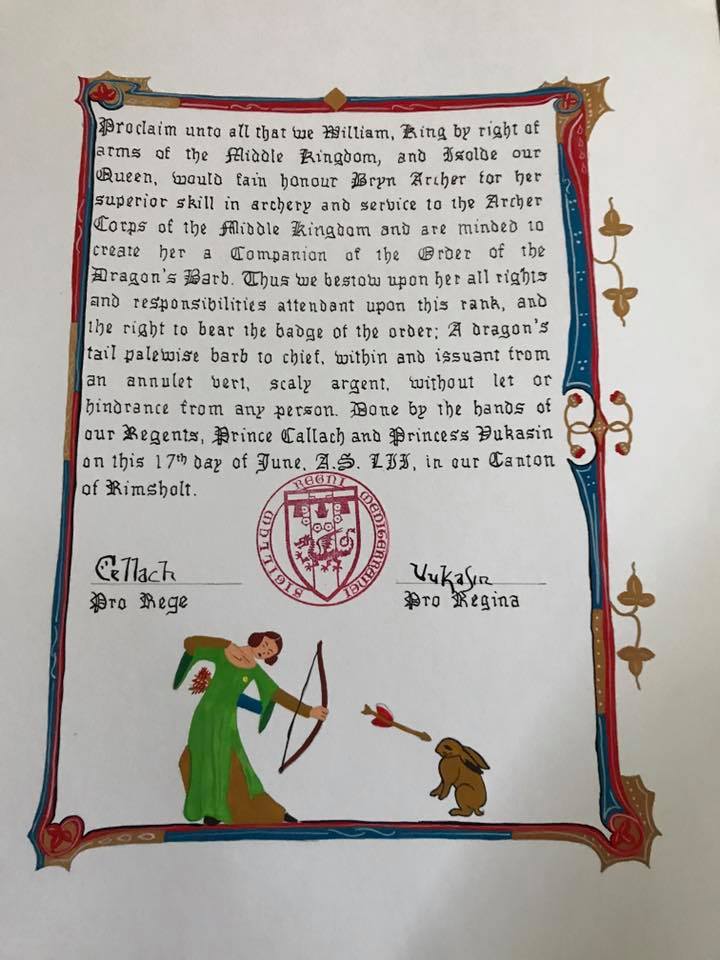 Proclaim unto all that we William, King by right of
arms of the Middle Kingdom, and Isolde our
Queen, would fain honour Bryn Archer for her
superior skill in archery and service to the Archer
Corps of the Middle Kingdom and are minded to
create her a Companion of the Order of the
Dragon's Barb. Thus we bestow upon her all rights
and responsibilities attendant upon this rank, and
the right to bear the badge of the order; A dragon's
tail palewise barb to chief, within and issuant from
an annulet vert, scaly argent, without let or
hindrance from any person. Done by the hands of
our Regents, Prince Callach and Princess Vukasin
on this 17th day of June, A.S. LII, in our Canton
of Rimsholt.
SIGILLEM REGNI MEDITERRANEI
Cellach
Vukasin
Pro Rege
Pro Regina